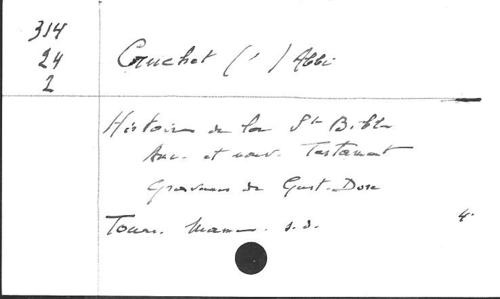 314
24
2
Cruchet (') Abbé
Histoire de la Ste Bible
Anc. et nouv. Testament
Gravures de Gust. Doré
Tours. Mame. s.d.
4°